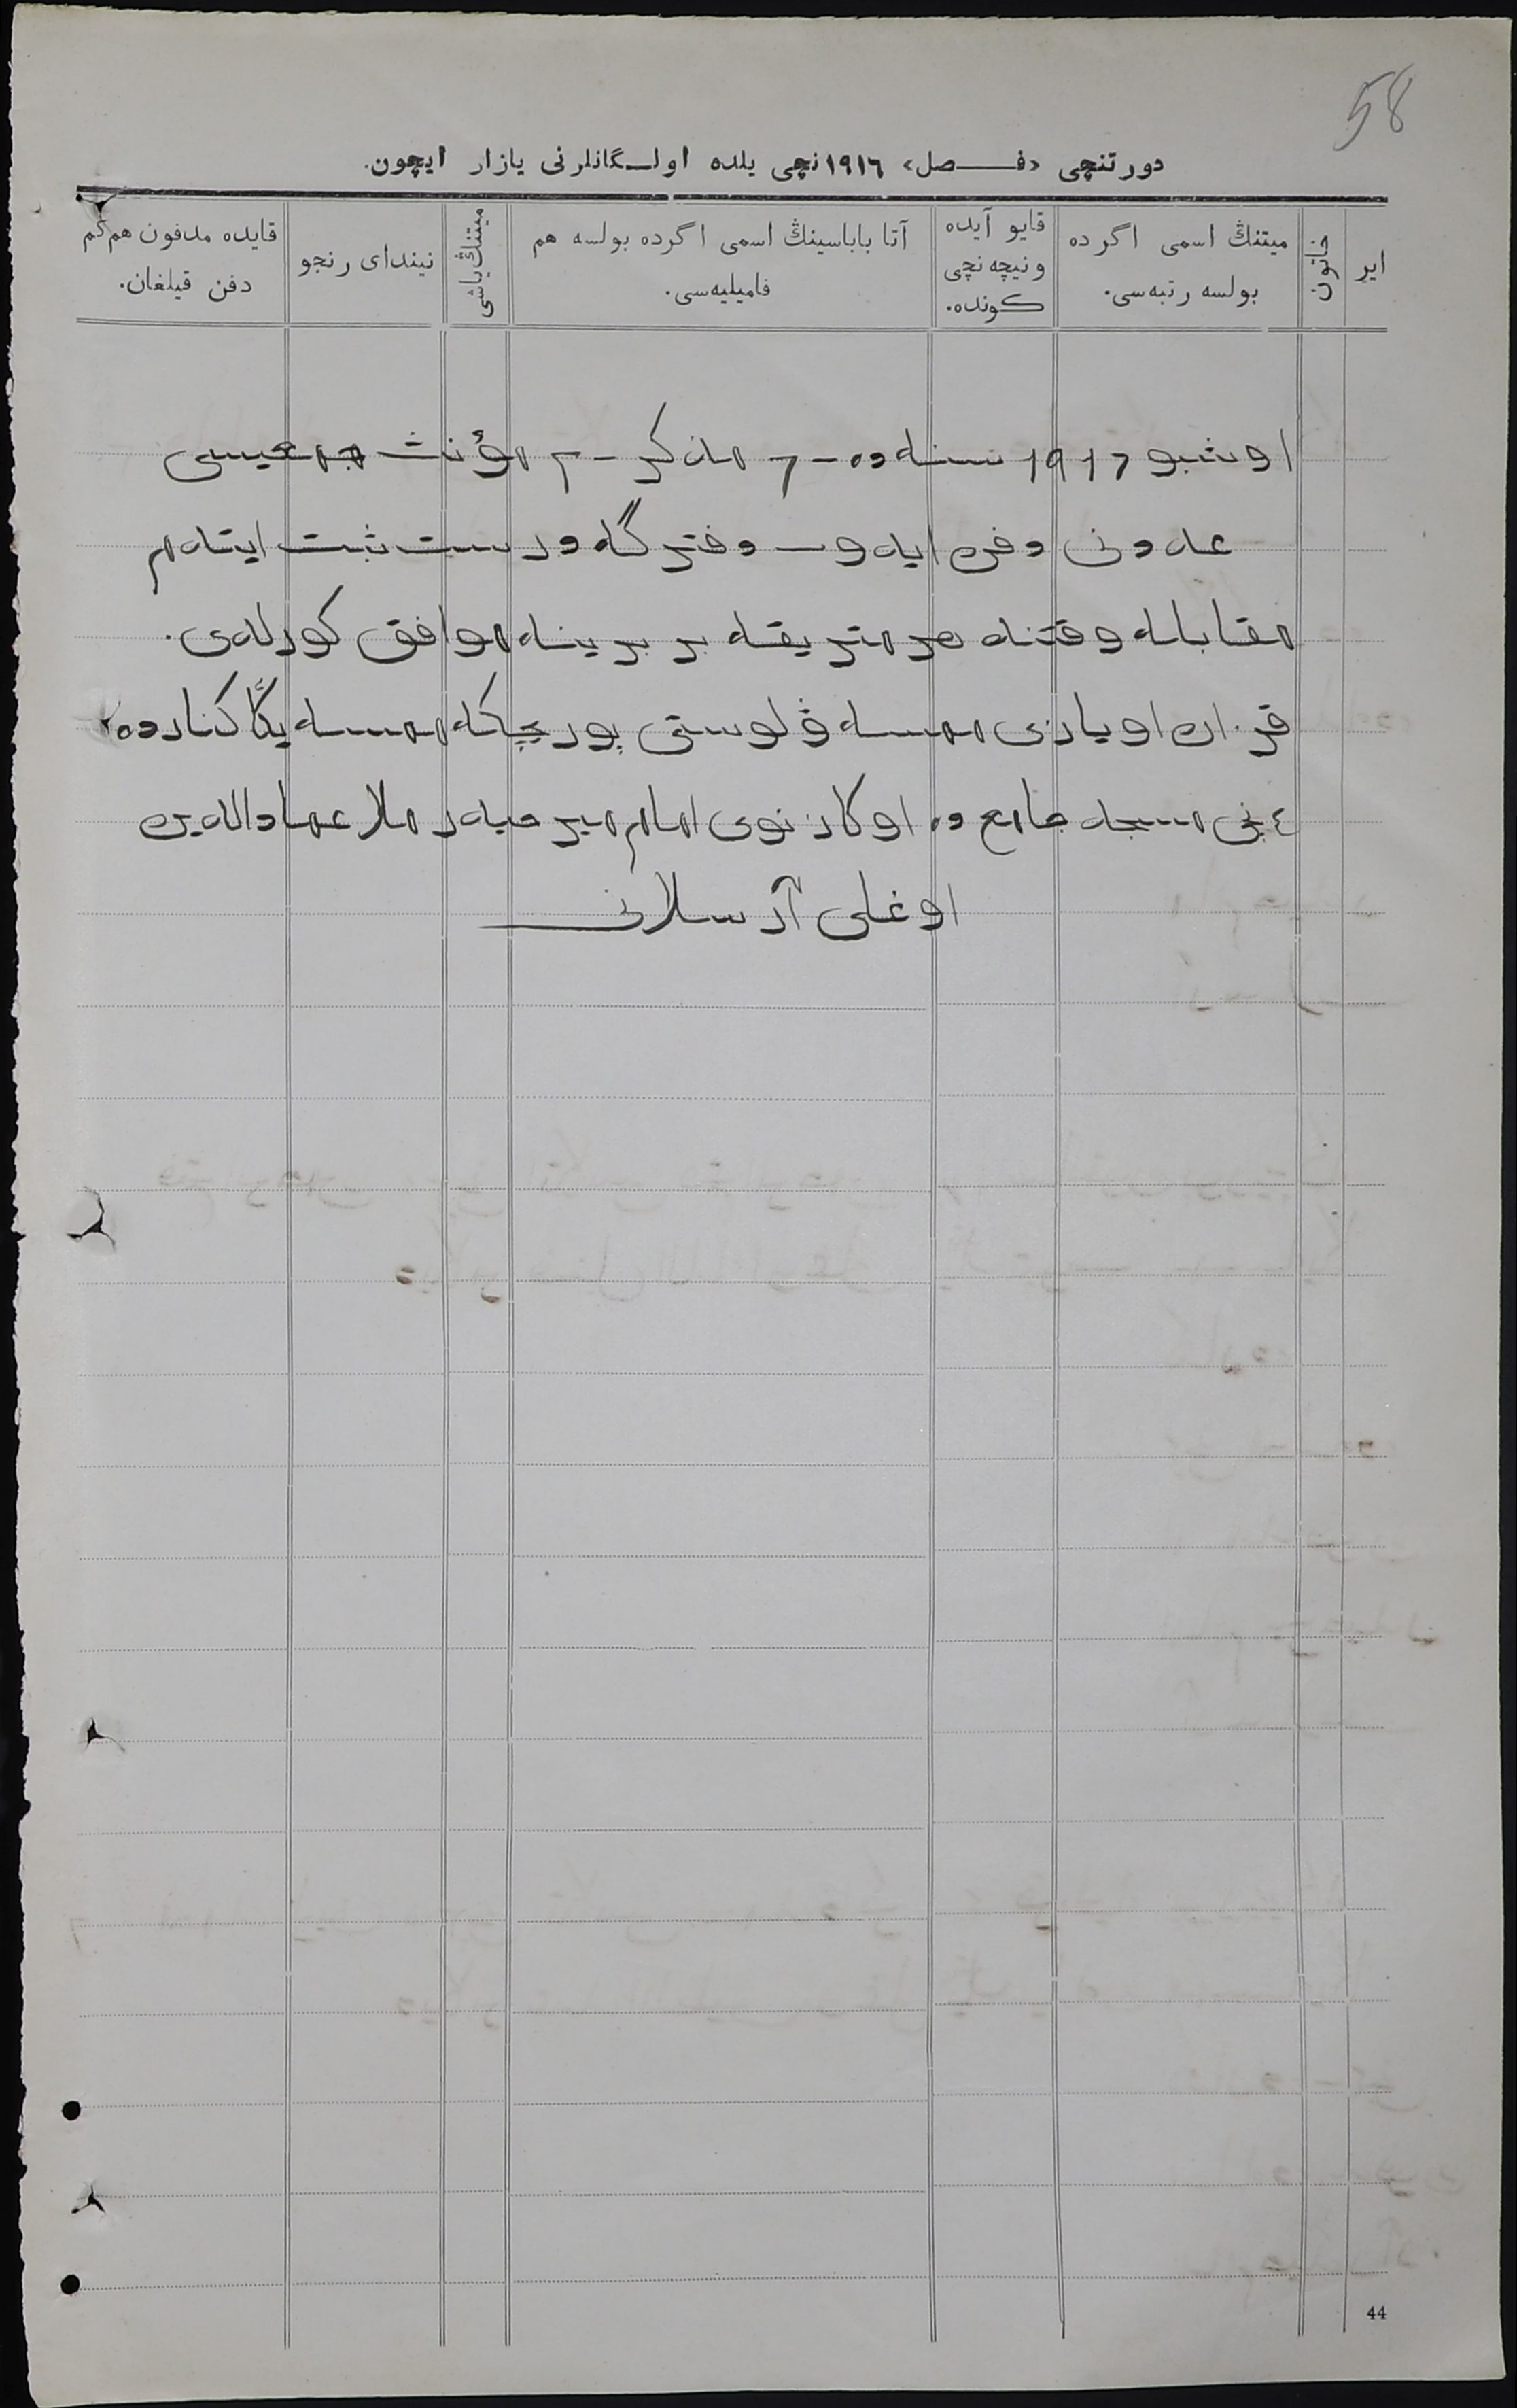 58
دورتنچی «فـــصل» ١٩١٦نچی یلده اولـگانلرنی یازار ایچون.
ایر
خاتون
میتنڭ اسمی اگرده
بولسه رتبه‌سی.
قایو آیده
و نیچه نچی
كونده.
آتا باباسینڭ اسمی اگرده بولسه هم
فامیلیه‌سی.
میتنڭ یاشی
نیندای رنجو
قایده مدفون هم کم
دفن قیلغان.
اوشبو ١٩١٦ سنه ده - ٦ مذکر - ٣ مؤنث جمعیسی
عددنی دفن ایدوب دفترگه درست ثبت ایتدم
مقابله وقتنده هر متریقه بر برینه موافق کورلدی.
قزان اویازی ممسه ڤلوستی پورچکه ممسه یڭا کنارده
٤ نچی مسجد جامع ده اوکازنوی امام میرحیدر ملا عمادالدین
اوغلی آرسلانف
44